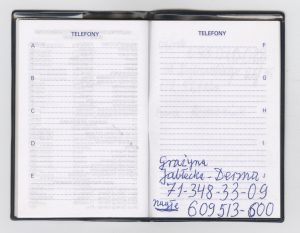 TELEFONY
A
B
C
D
E
TELEFONY
F
G
H
I
Grażyna
Jabłecka - Derma.
71-348-33-09
609513-600